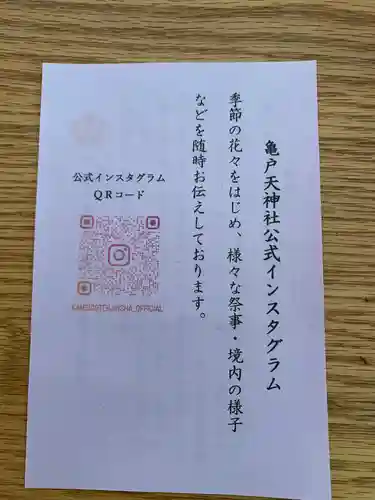 亀戸天神社公式インスタグラム
季節の花々をはじめ、様々な祭事・境内の様子
などを随時お伝えしております。
公式インスタグラム
QRコード
KAMEIDOTENJINSHA_OFFICIAL